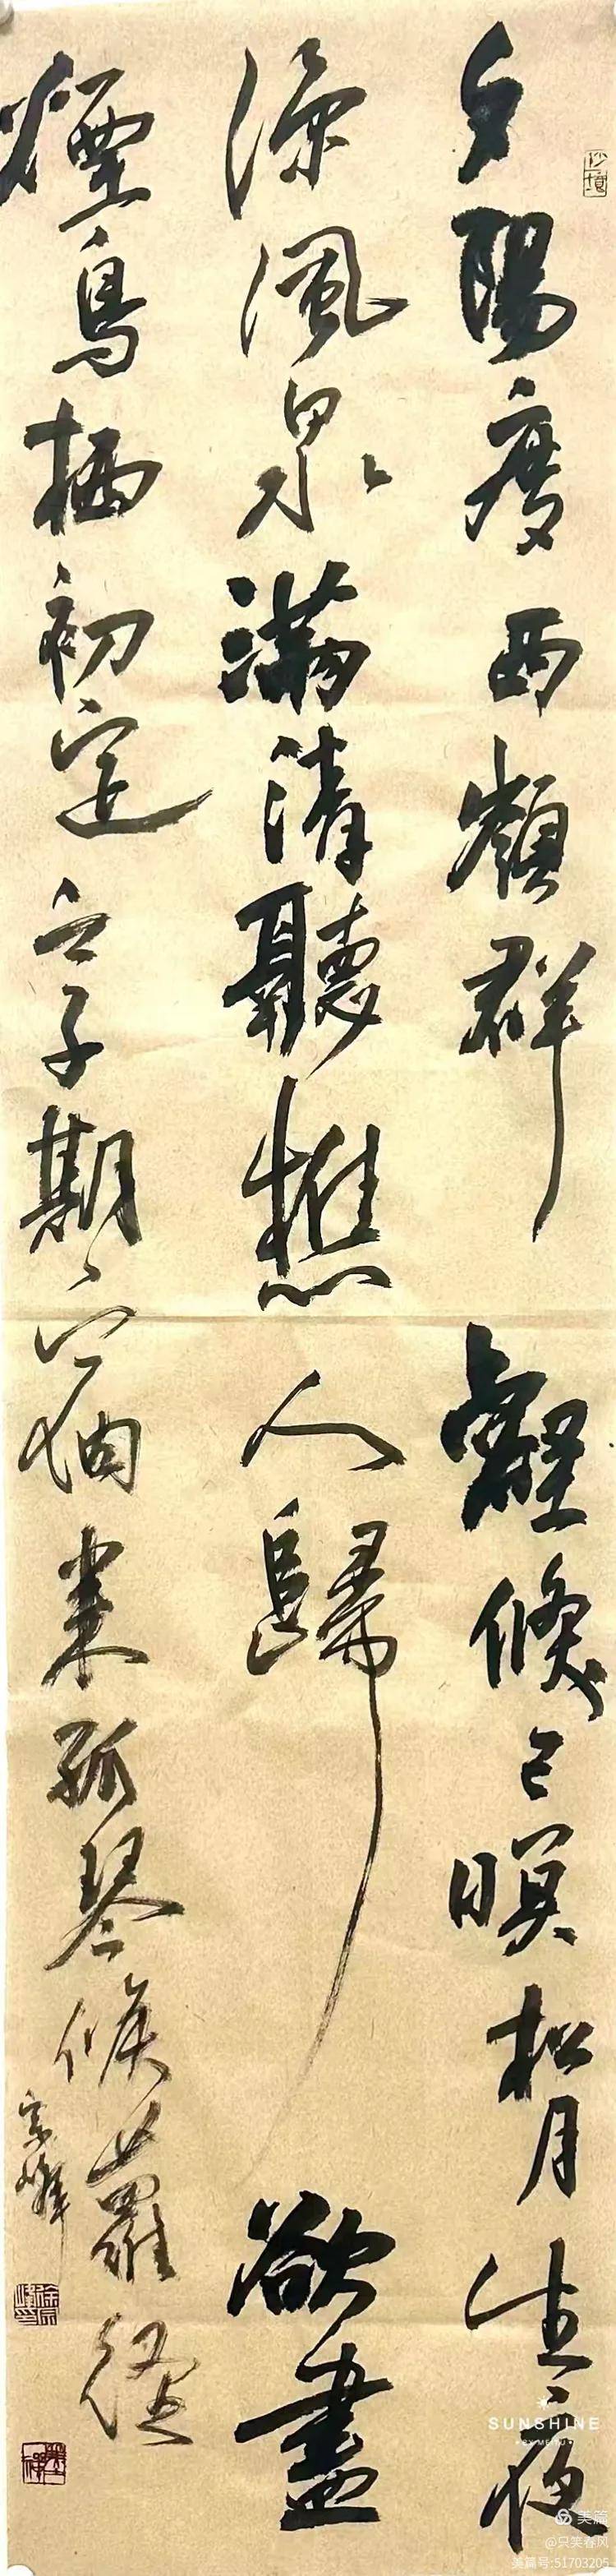 夕陽度西嶺群壑倏已暝松月生夜
涼風泉滿清聽樵人歸欲盡
煙鳥栖初定之子期宿来孤琴候蘿徑
宗峰
SUNSHINE
美篇
@只笑春风
美篇号:51703205